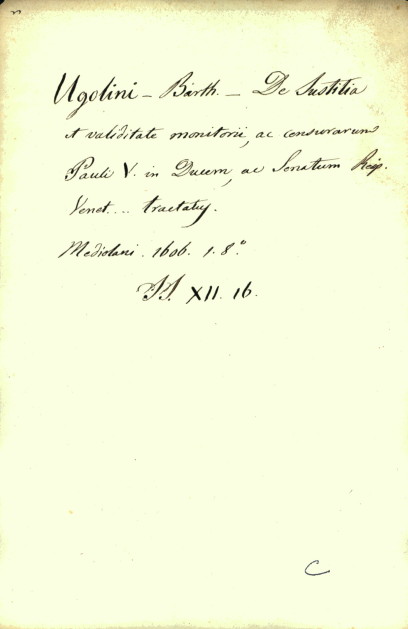 Ugolini - Barth. - De Justitia
et validitate monitorii, ac censurarum
Pauli V. in Ducem, ac Senatum Reip.
Venet... tractatus.
Mediolani. 1606. 1. 8.°
XII. 16.
C